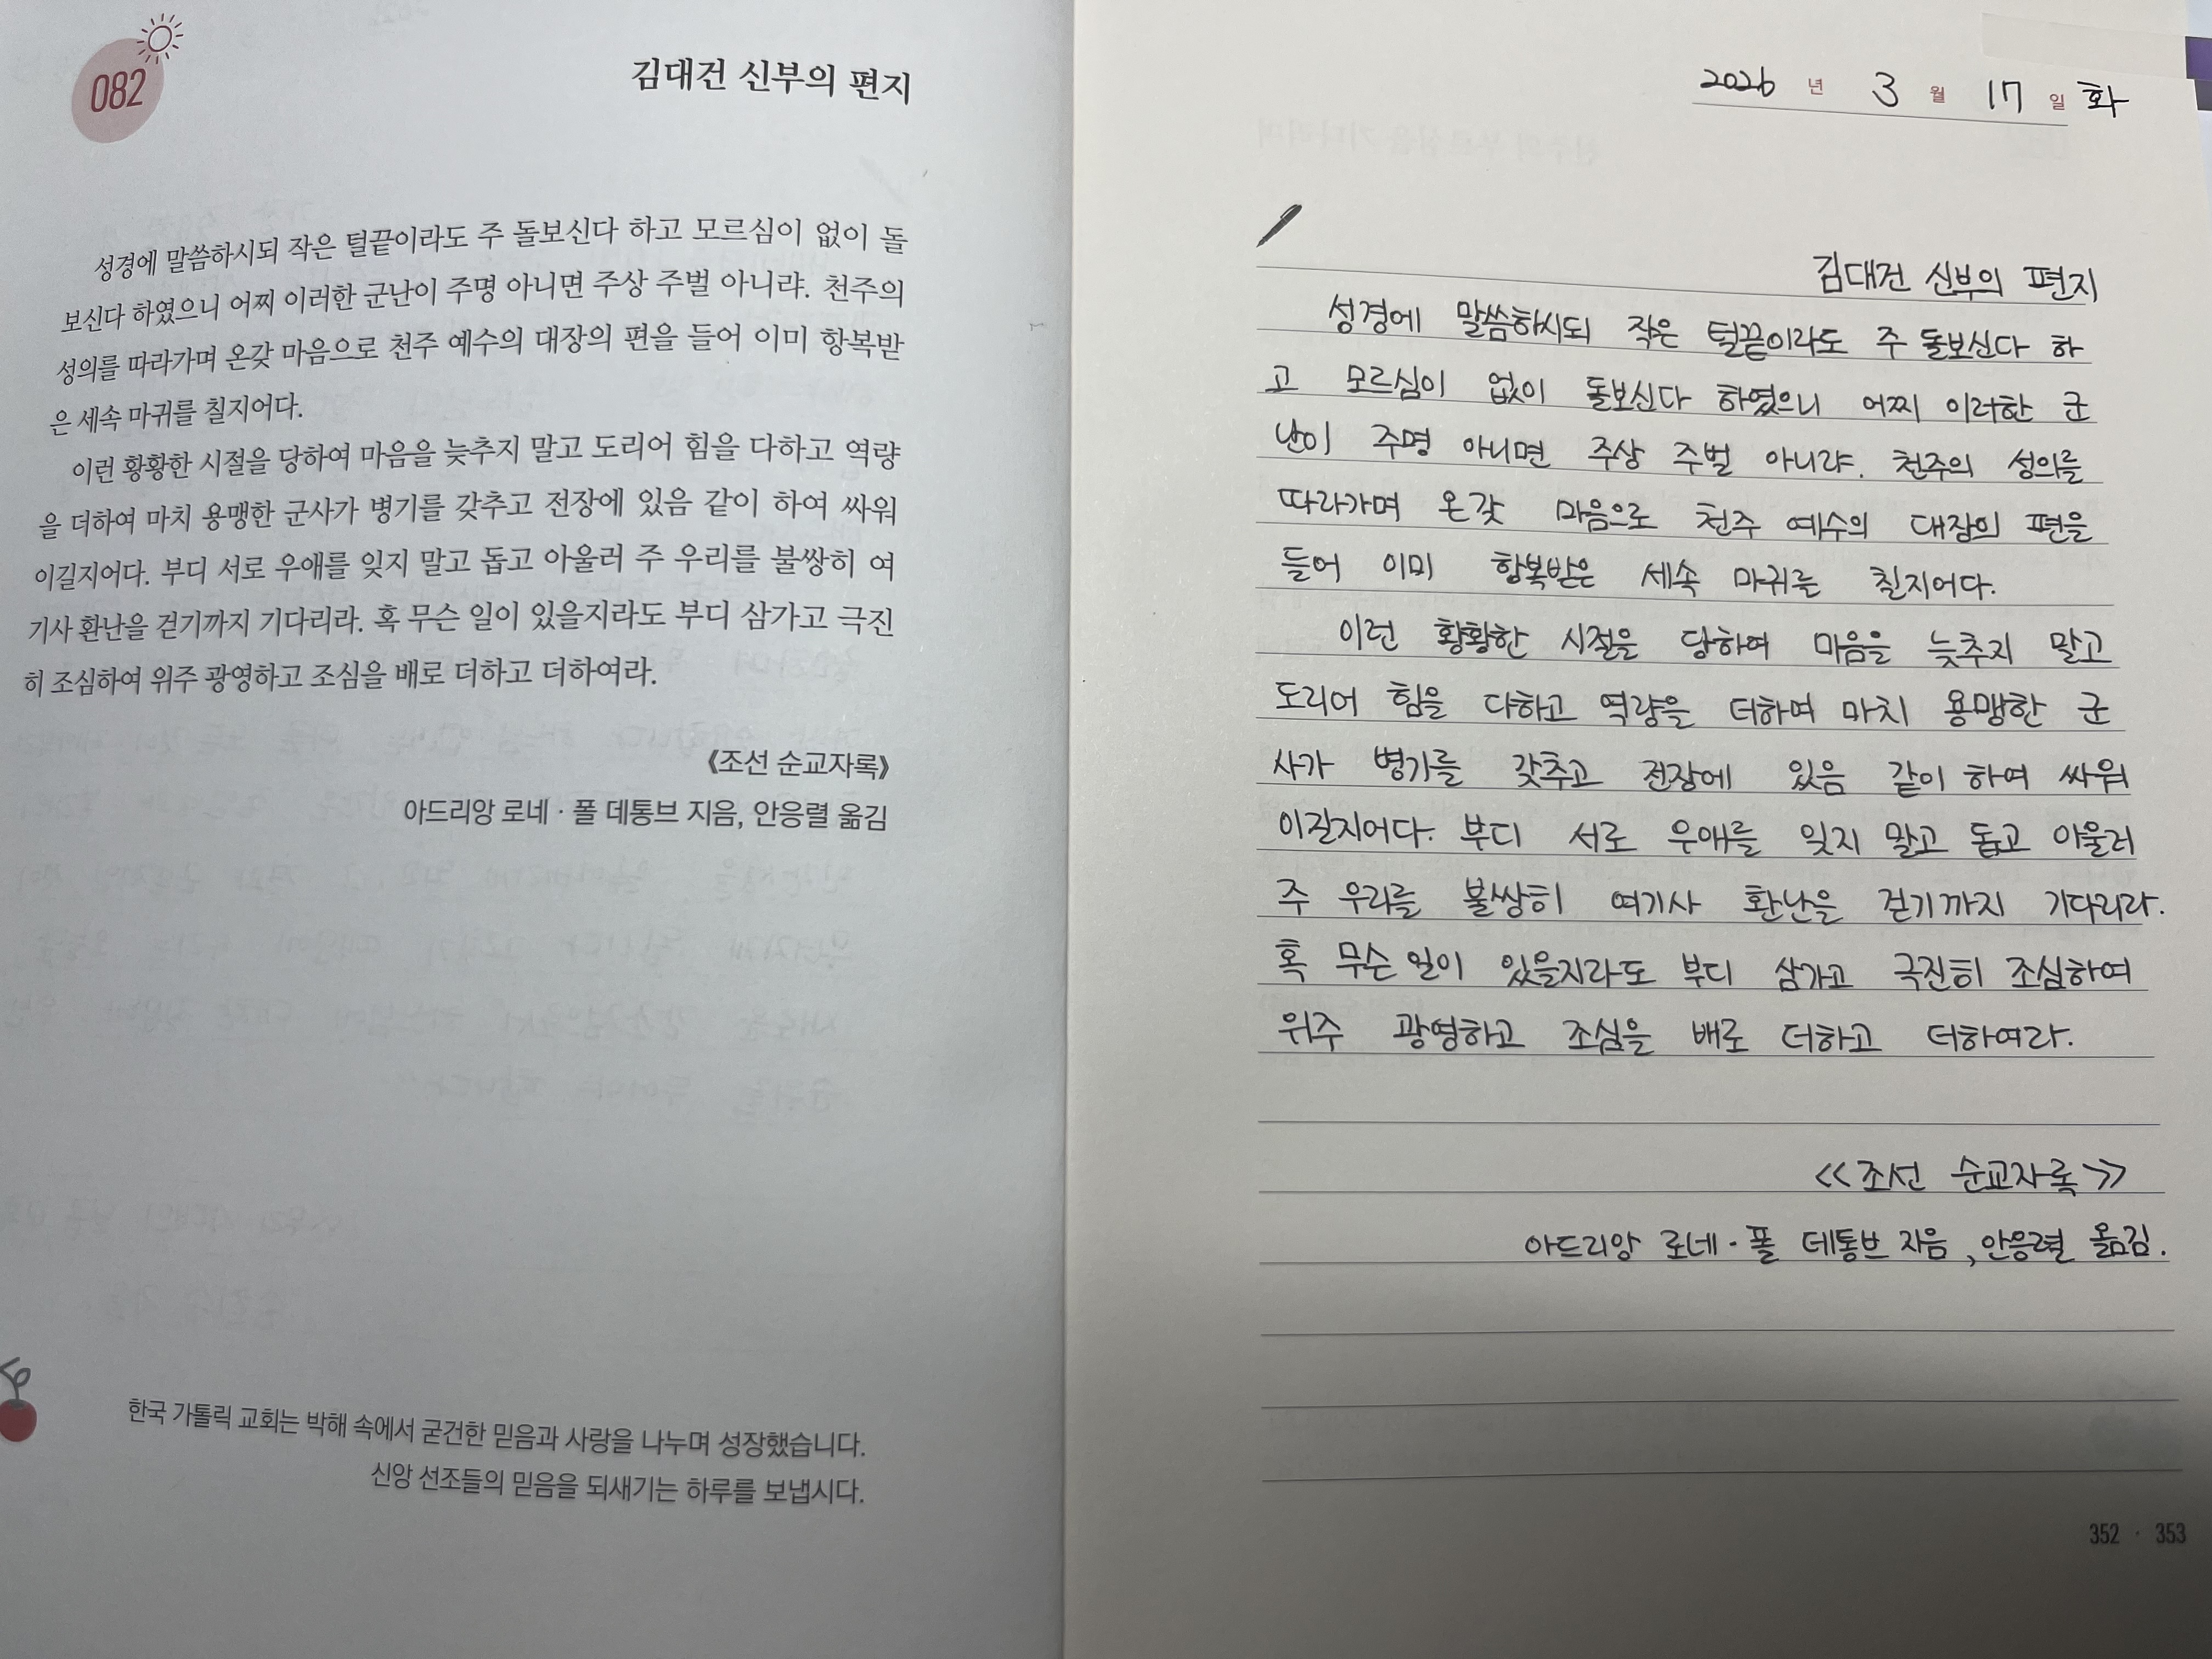 082
김대건 신부의 편지
성경에 말씀하시되 작은 털끝이라도 주 돌보신다 하고 모르심이 없이 돌
보신다 하였으니 어찌 이러한 군난이 주명 아니면 주상 주벌 아니랴. 천주의
성의를 따라가며 온갖 마음으로 천주 예수의 대장의 편을 들어 이미 항복받
은 세속 마귀를 칠지어다.
이런 황황한 시절을 당하여 마음을 늦추지 말고 도리어 힘을 다하고 역량
을 더하여 마치 용맹한 군사가 병기를 갖추고 전장에 있음 같이 하여 싸워
이길지어다. 부디 서로 우애를 잊지 말고 돕고 아울러 주 우리를 불쌍히 여
기사 환난을 걷기까지 기다리라. 혹 무슨 일이 있을지라도 부디 삼가고 극진
히 조심하여 위주 광영하고 조심을 배로 더하고 더하여라.
《조선 순교자록》
아드리앙 로네 · 폴 데통브 지음, 안응렬 옮김
한국 가톨릭 교회는 박해 속에서 굳건한 믿음과 사랑을 나누며 성장했습니다.
신앙 선조들의 믿음을 되새기는 하루를 보냅시다.
2026 년 3 월 17 일 화
김대건 신부의 편지
성경에 말씀하시되 작은 털끝이라도 주 돌보신다 하
고 모르심이 없이 돌보신다 하였으니 어찌 이러한 군
난이 주명 아니면 주상 주벌 아니랴. 천주의 성의를
따라가며 온갖 마음으로 천주 예수의 대장의 편을
들어 이미 항복받은 세속 마귀를 칠지어다.
이런 황황한 시절을 당하여 마음을 늦추지 말고
도리어 힘을 다하고 역량을 더하여 마치 용맹한 군
사가 병기를 갖추고 전장에 있음 같이 하여 싸워
이길지어다. 부디 서로 우애를 잊지 말고 돕고 아울러
주 우리를 불쌍히 여기사 환난을 걷기까지 기다리라.
혹 무슨 일이 있을지라도 부디 삼가고 극진히 조심하여
위주 광영하고 조심을 배로 더하고 더하여라.
<<조선 순교자록>>
아드리앙 로네 · 폴 데통브 지음, 안응렬 옮김.
352 · 353